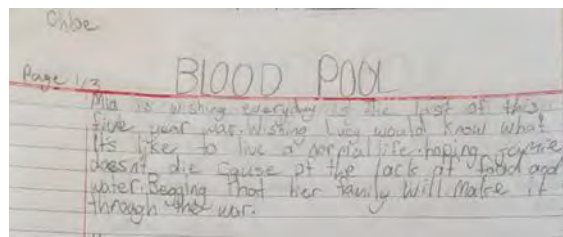 Chloe
Page 1/3
BLOOD POOL
Mia is wishing everyday is the last of this
five year war. Wishing Lucy would know what
it's like to live a normal life. hoping
doesnt die cause of the lack of food and
water. Begging that her family will make it
through the war.